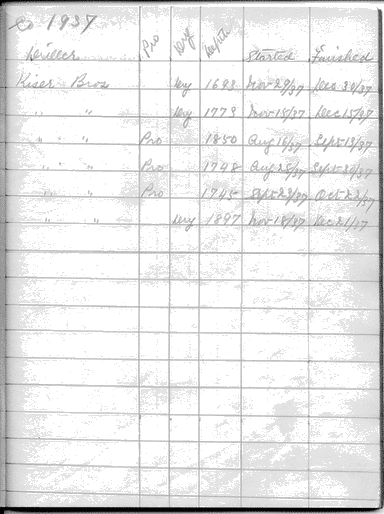 to 1937
Driller Pro Dry Depth Started Finished
Kiser Bros Dry 1693 Nov 29/37 Dec 30/37
" " Dry 1773 Nov 15/37 Dec 15/37
" " Pro 1850 Aug 16/37 Sept 13/37
" " Pro 1748 Aug 25/37
" " Pro 1745 Sept 29/37 Oct 22/37
" " Dry 1897 Nov 18/37 Dec 21/37